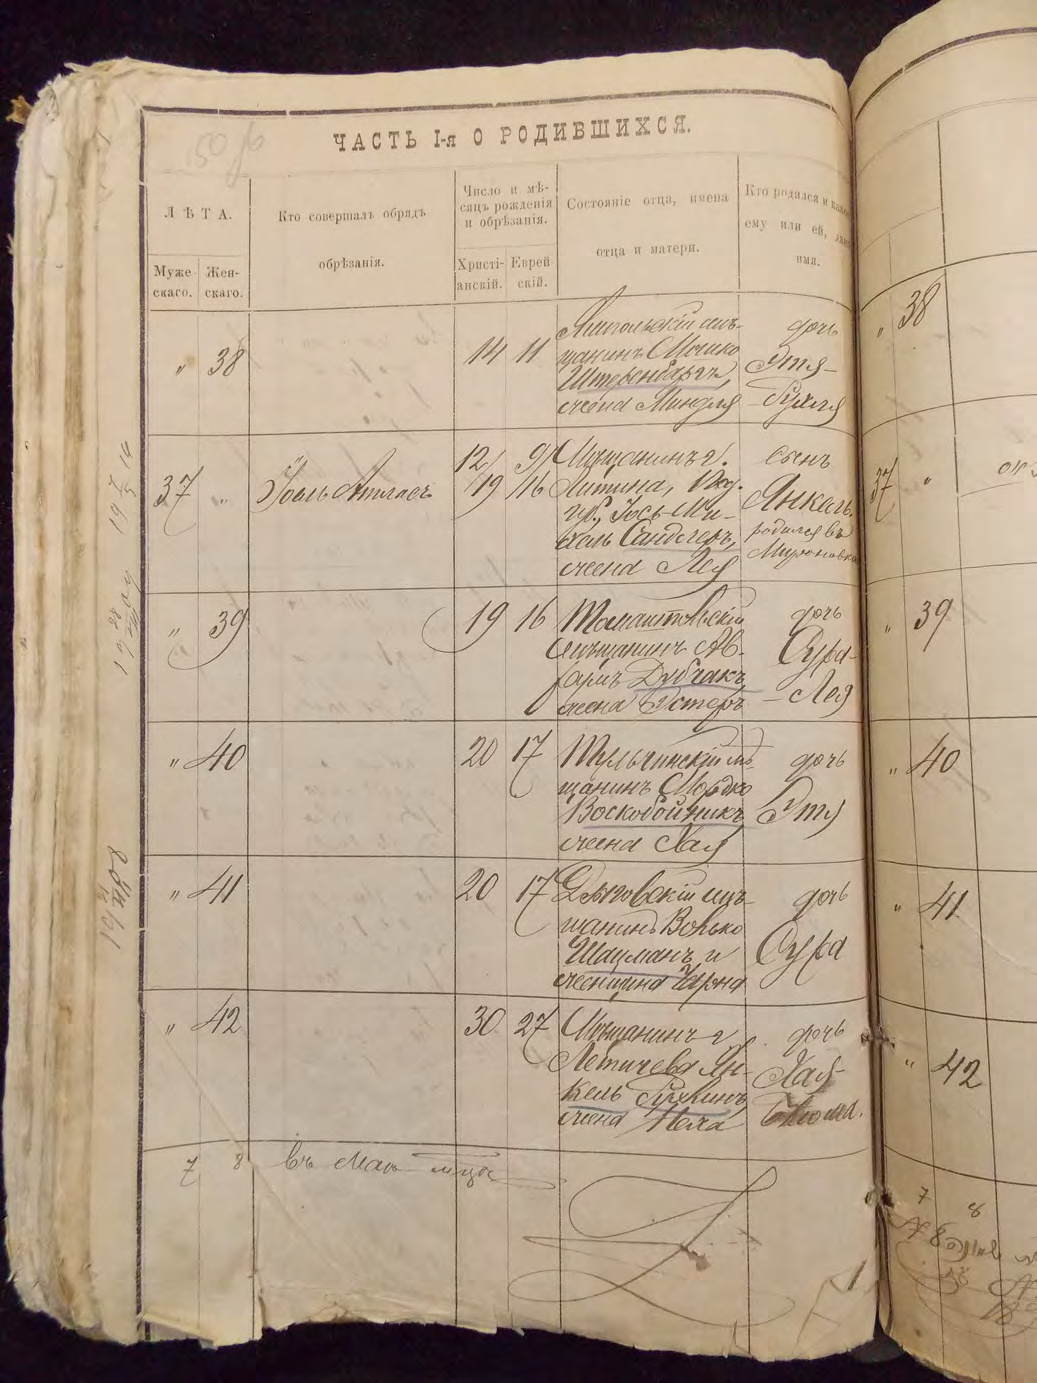 ЧАСТЬ I-я О РОДИВШИХСЯ.
ЛѢТА.
Муже-
скаго.
Жен-
скаго.
Кто совершалъ обрядъ
обрѣзанія.
Число и мѣ-
сяцъ рожденія
и обрѣзанія.
Христі-
анскій.
Еврей
скій.
Состояніе отца, имена
отца и матери.
Кто родился и какое
ему или ей, дано
имя.
" 38
14 11
мѣ-
щанинъ Мошко
Штеренбергъ,
жена Миндля
дочь
Этя-
Рухля
37 "
Іоиль Атласъ
12/19 9/16
Мѣщанинъ г.
Литина, Под.
губ., Іось-Ми-
хель Сандлеръ,
жена Лея
сынъ
Янкель.
родился въ
Мироновкѣ
" 39
19 16
Томашпольскій
мѣщанинъ Ав-
румъ Дубчакъ,
жена Эстеръ
дочь
Сура-
Лея
" 40
20 17
Тульчинскій мѣ-
щанинъ Мордко
Воскобойникъ
жена Хая
дочь
Этя
" 41
20 17
Дзыговскій мѣ-
щанинъ Волько
Шацманъ и
женщина Чарна
дочь
Сура
" 42
30 27
Мѣщанинъ г.
Летичева Ян-
кель Рухкинъ,
жена Неха
дочь
Хая-
Блюма.
7 8 въ Маѣ мцѣ
" 38
37 "
" 39
" 40
" 41
" 42
7 8